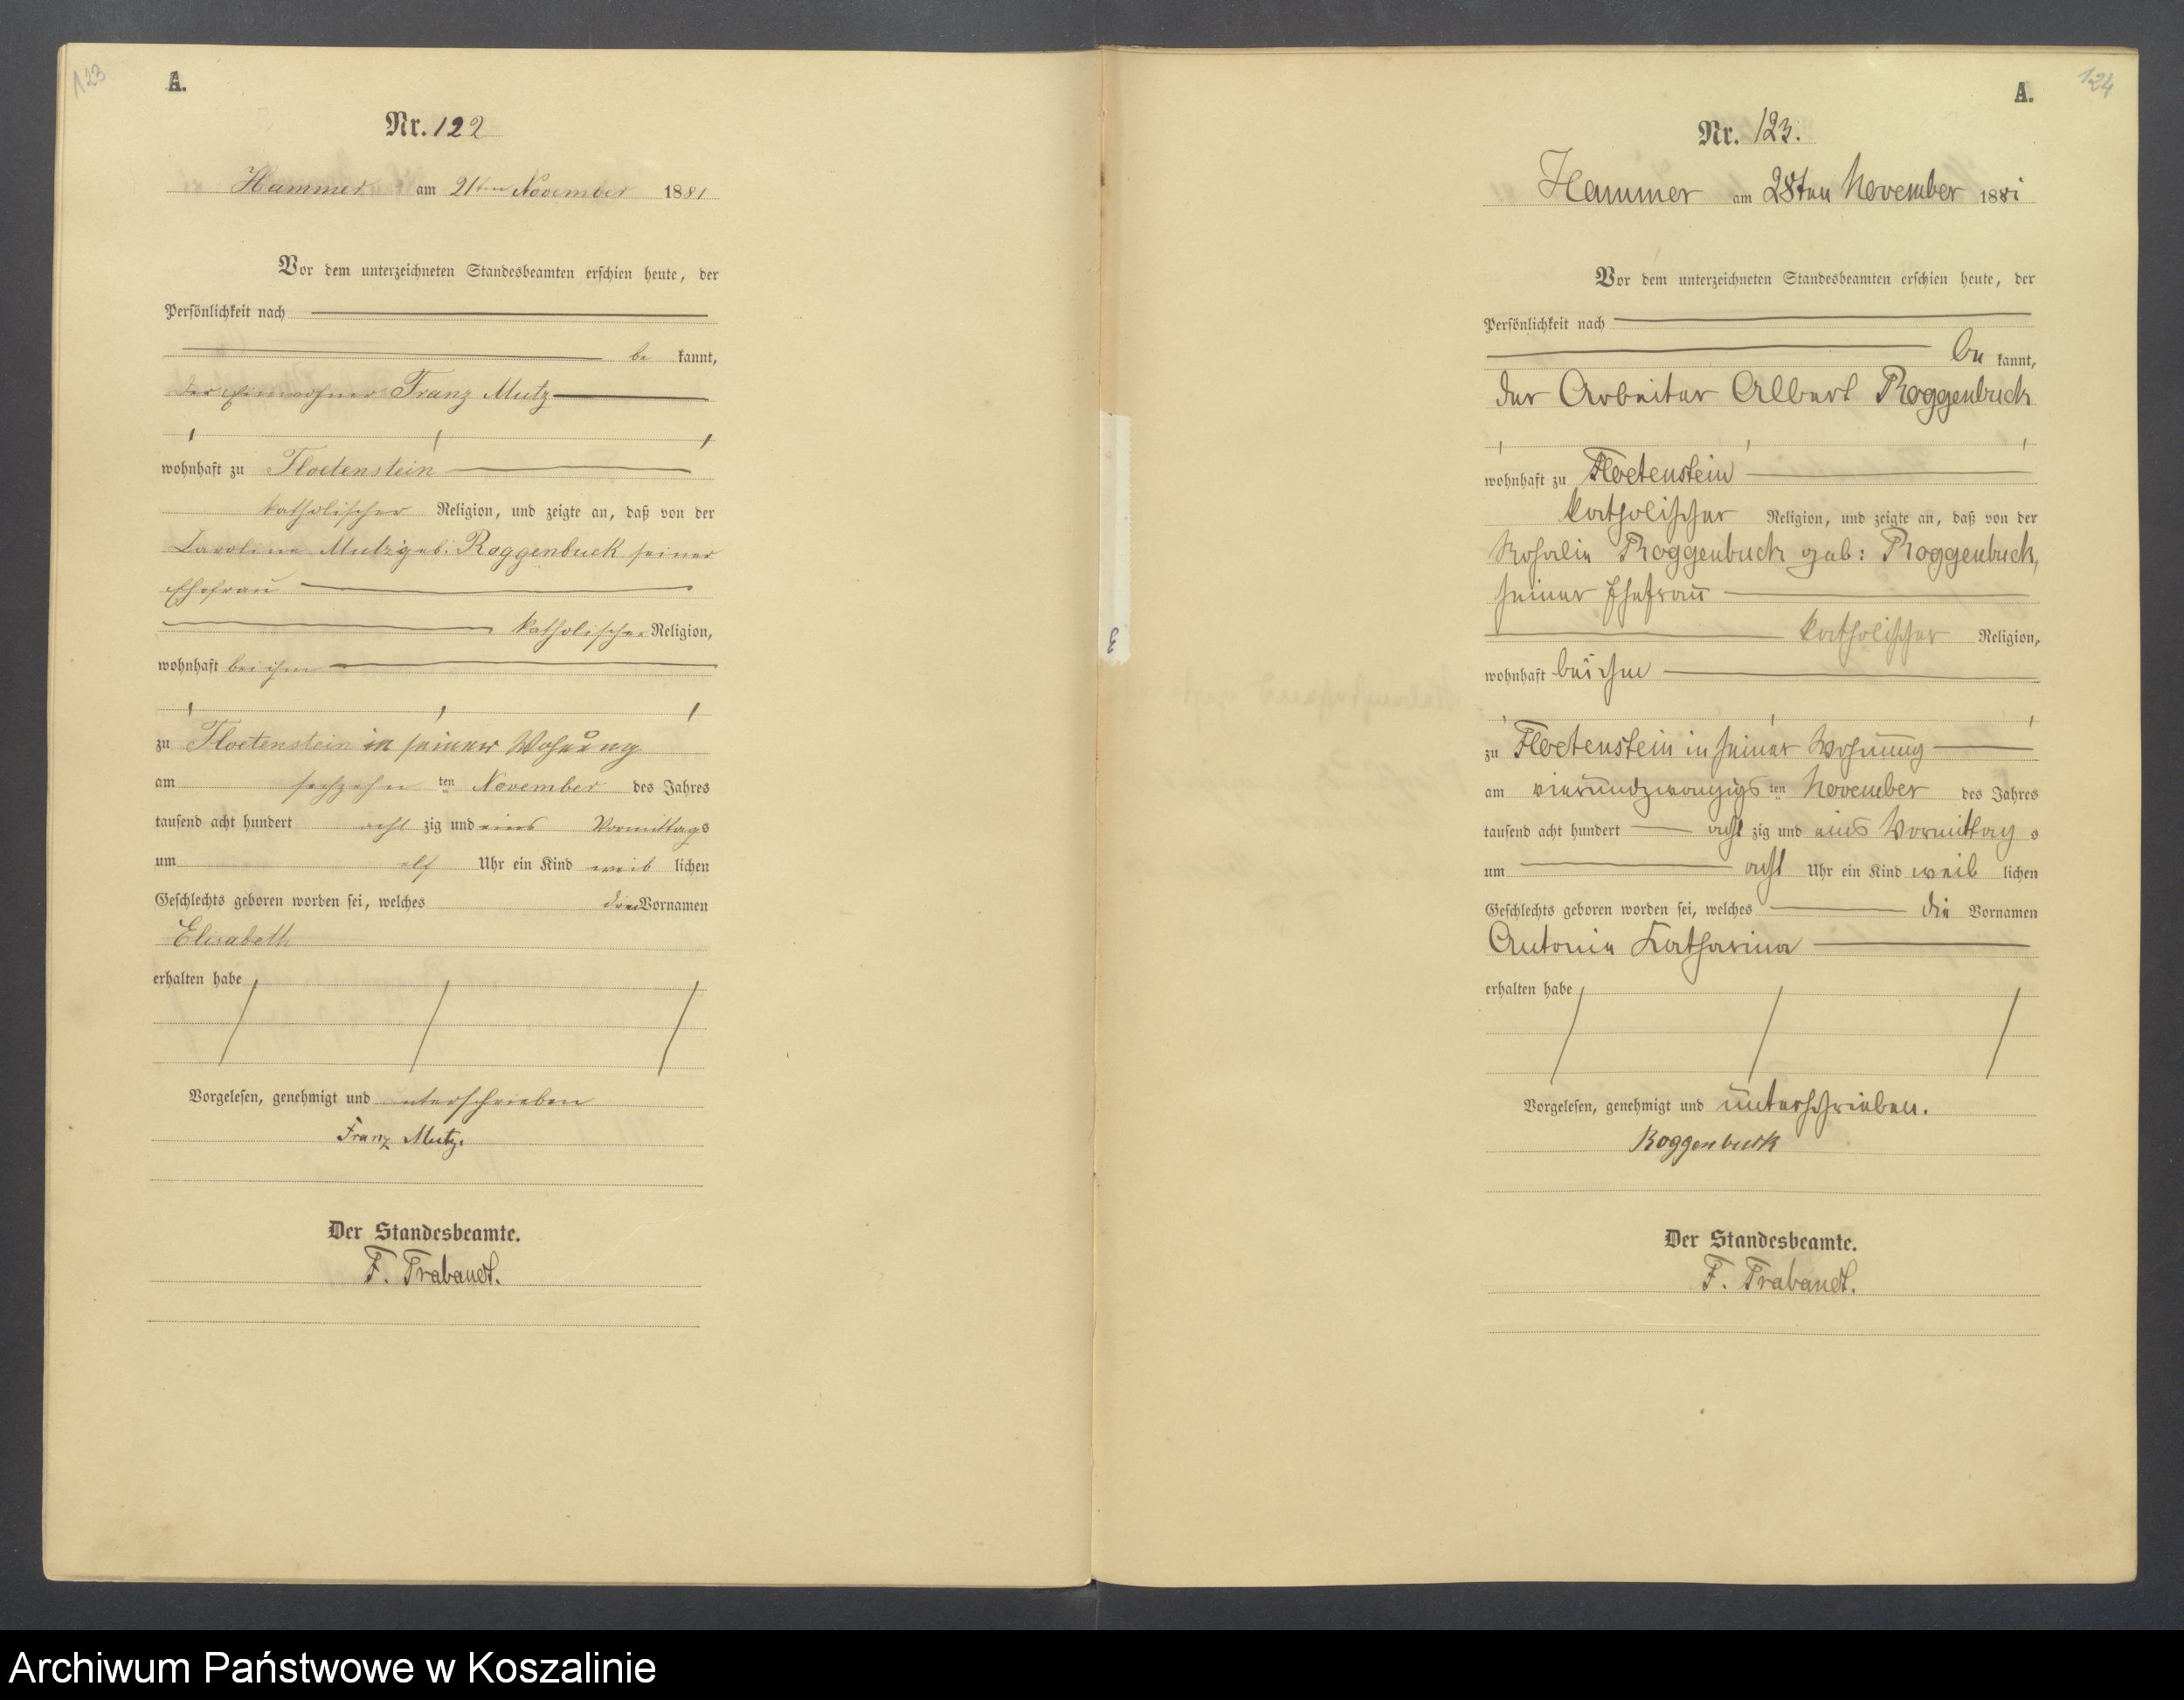 123
A.
Nr. 122
Hammer am 21ten November 1881
Vor dem unterzeichneten Standesbeamten erschien heute, der
Persönlichkeit nach
be kannt,
der Einwohner Franz Mutz
wohnhaft zu Floetenstein
katholischer Religion, und zeigte an, daß von der
Caroline Mutz geb. Roggenbuck seiner
Ehefrau
katholischer Religion,
wohnhaft bei ihm
zu Floetenstein in seiner Wohnung
am sechzehn ten November des Jahres
tausend acht hundert acht zig und eins Vormittags
um elf Uhr ein Kind weib lichen
Geschlechts geboren worden sei, welches den Vornamen
Elisabeth
erhalten habe
Vorgelesen, genehmigt und unterschrieben
Franz Mutz.
Der Standesbeamte.
F. Trabandt.
124
A.
Nr. 123.
Hammer am 28ten November 1881
Vor dem unterzeichneten Standesbeamten erschien heute, der
Persönlichkeit nach
be kannt,
der Arbeiter Albert Roggenbuck
wohnhaft zu Floetenstein
katholischer Religion, und zeigte an, daß von der
Rosalie Roggenbuck geb: Roggenbuck,
seiner Ehefrau
katholischer Religion,
wohnhaft bei ihm
zu Floetenstein in seiner Wohnung
am vierundzwanzigs ten November des Jahres
tausend acht hundert acht zig und eins Vormittag s
um acht Uhr ein Kind weib lichen
Geschlechts geboren worden sei, welches die Vornamen
Antonie Katharina
erhalten habe
Vorgelesen, genehmigt und unterschrieben.
Roggenbuck
Der Standesbeamte.
F. Trabandt.
Archiwum Państwowe w Koszalinie